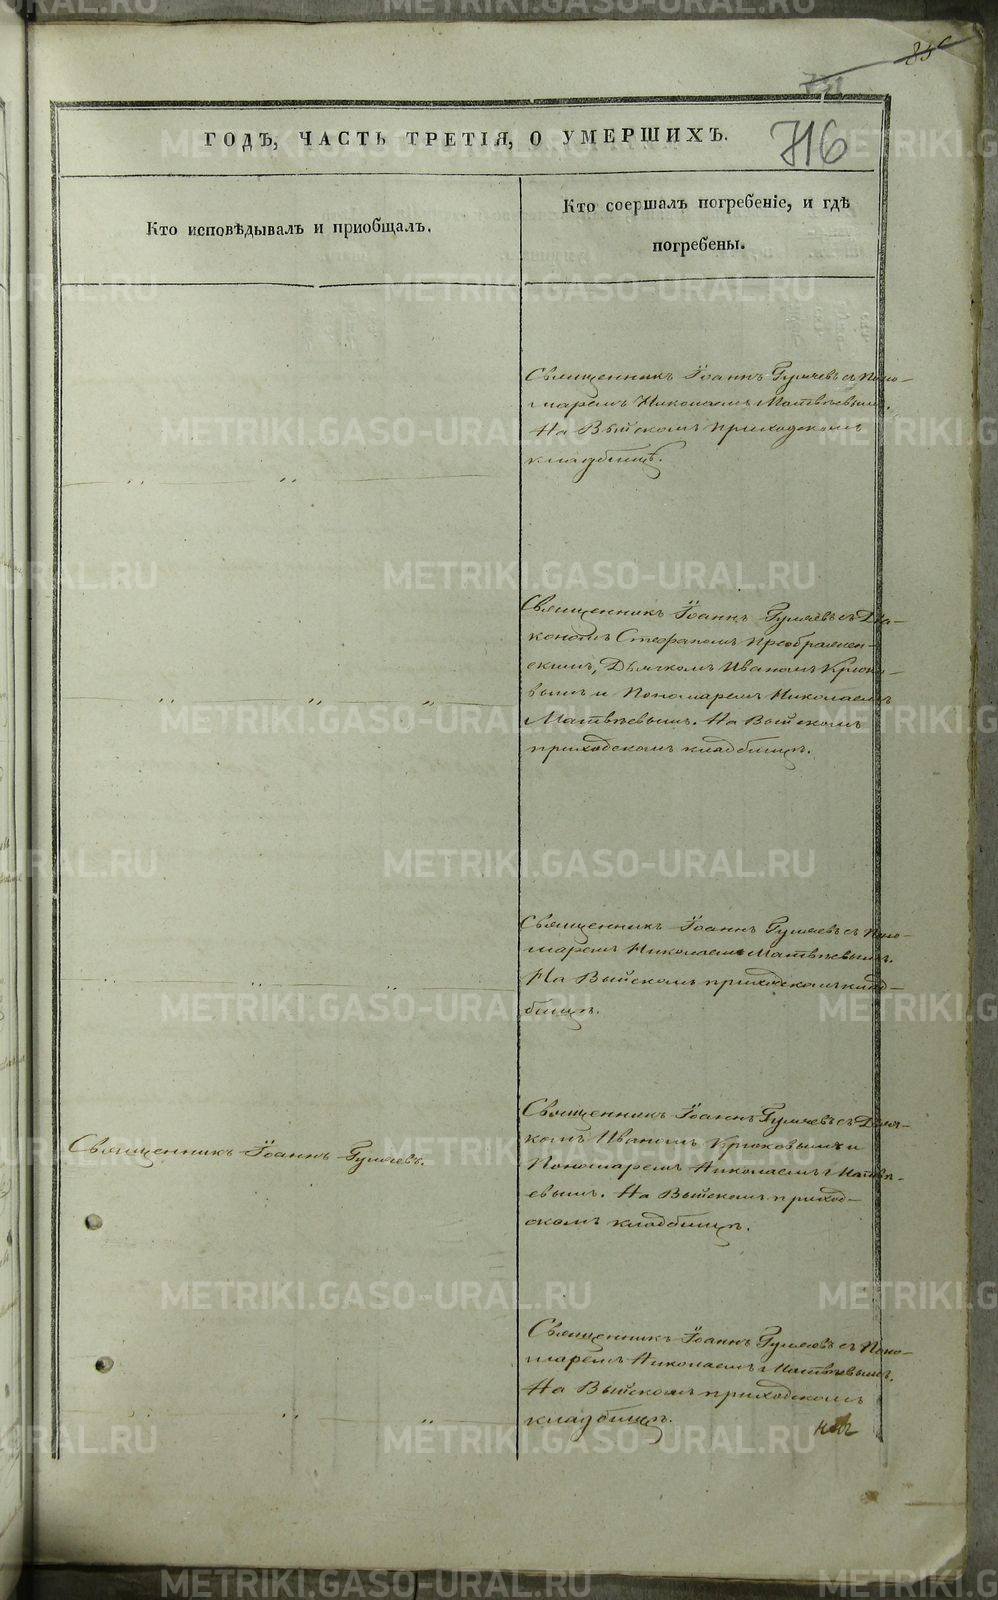 85
716
ГОДЪ, ЧАСТЬ ТРЕТІЯ, О УМЕРШИХЪ.
Кто исповѣдывалъ и приобщалъ.
Кто соершалъ погребеніе, и гдѣ
погребены.
Священникъ Іоаннъ Гуляевъ съ Поно-
маремъ Николаемъ Матвѣевымъ.
На Выйскомъ приходскомъ
кладбищѣ.
Священникъ Іоаннъ Гуляевъ съ Діа-
кономъ Стефаномъ Преображен-
скимъ, Дьячкомъ Иваномъ Крюко-
вымъ и Пономаремъ Николаемъ
Матвѣевымъ. На Выйскомъ
приходскомъ кладбищѣ.
Священникъ Іоаннъ Гуляевъ съ Поно-
маремъ Николаемъ Матвѣевымъ.
На Выйскомъ приходскомъ клад-
бищѣ.
Священникъ Іоаннъ Гуляевъ.
Священникъ Іоаннъ Гуляевъ съ Дьяч-
комъ Иваномъ Крюковымъ и
Пономаремъ Николаемъ Матвѣ-
евымъ. На Выйскомъ приход-
скомъ кладбищѣ.
Священникъ Іоаннъ Гуляевъ съ Поно-
маремъ Николаемъ Матвѣевымъ.
На Выйскомъ приходскомъ
кладбищѣ.
METRIKI.GASO-URAL.RU